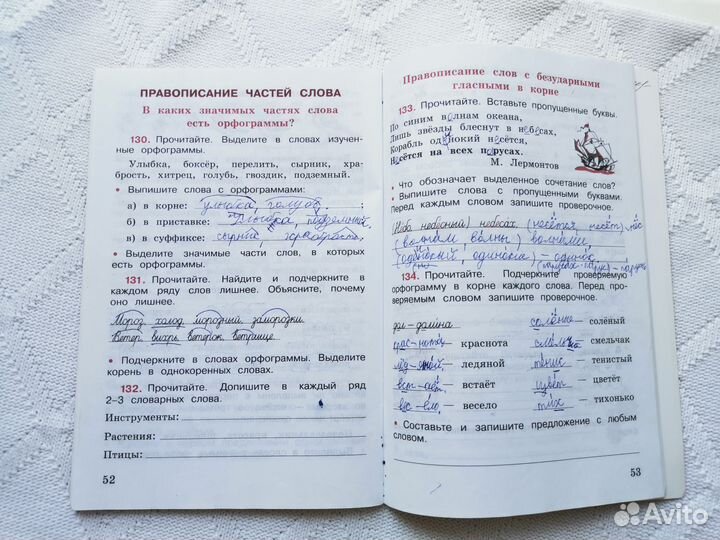 ПРАВОПИСАНИЕ ЧАСТЕЙ СЛОВА
В каких значимых частях слова
есть орфограммы?
130. Прочитайте. Выделите в словах изучен-
ные орфограммы.
Улыбка, боксёр, перелить, сырник, хра-
брость, хитрец, голубь, гвоздик, подземный.
• Выпишите слова с орфограммами:
а) в корне: улыбка, голуб
б) в приставке: подземный,
в) в суффиксе: сырник,
• Выделите значимые части слов, в которых
есть орфограммы.
131. Прочитайте. Найдите и подчеркните в
каждом ряду слов лишнее. Объясните, почему
оно лишнее.
Мороз, холод, морозный, заморозки.
Ветер, вихрь, ветерок, ветрище.
• Подчеркните в словах орфограммы. Выделите
корень в однокоренных словах.
132. Прочитайте. Допишите в каждый ряд
2–3 словарных слова.
Инструменты:
Растения:
Птицы:
52
Правописание слов с безударными
гласными в корне
133. Прочитайте. Вставьте пропущенные буквы.
По синим волнам океана,
Лишь звёзды блеснут в небесах,
Корабль одинокий несётся,
Несётся на всех парусах.
М. Лермонтов
• Что обозначает выделенное сочетание слов?
• Выпишите слова с пропущенными буквами.
Перед каждым словом запишите проверочное.
небесах,
волны) волнами,
134. Прочитайте. Подчеркните проверяемую
орфограмму в корне каждого слова. Перед про-
веряемым словом запишите проверочное.
дол-долина — солёный
— краснота — смельчак
— ледяной — тенистый
— встаёт цвет — цветёт
— весело тих — тихонько
• Составьте и запишите предложение с любым
словом.
53
Avito